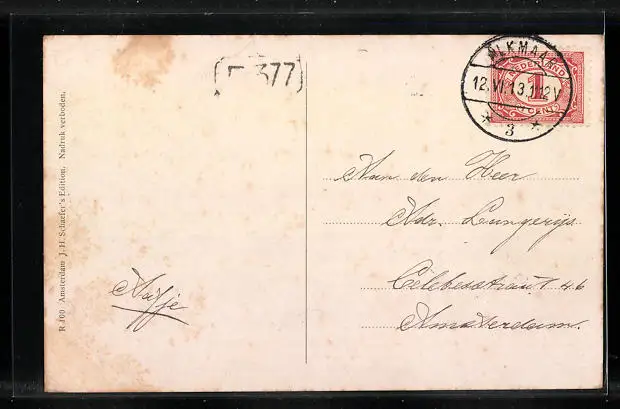 ALKMAAR
12.VI.13.1-12V
3
NEDERLAND
1
CENT
377
Aan den Heer
Adr. Lungerijs
Celebesstraat 46
Amsterdam.
Aafje
R 100 Amsterdam J. H. Schaefer's Edition. Nadruk verboden.